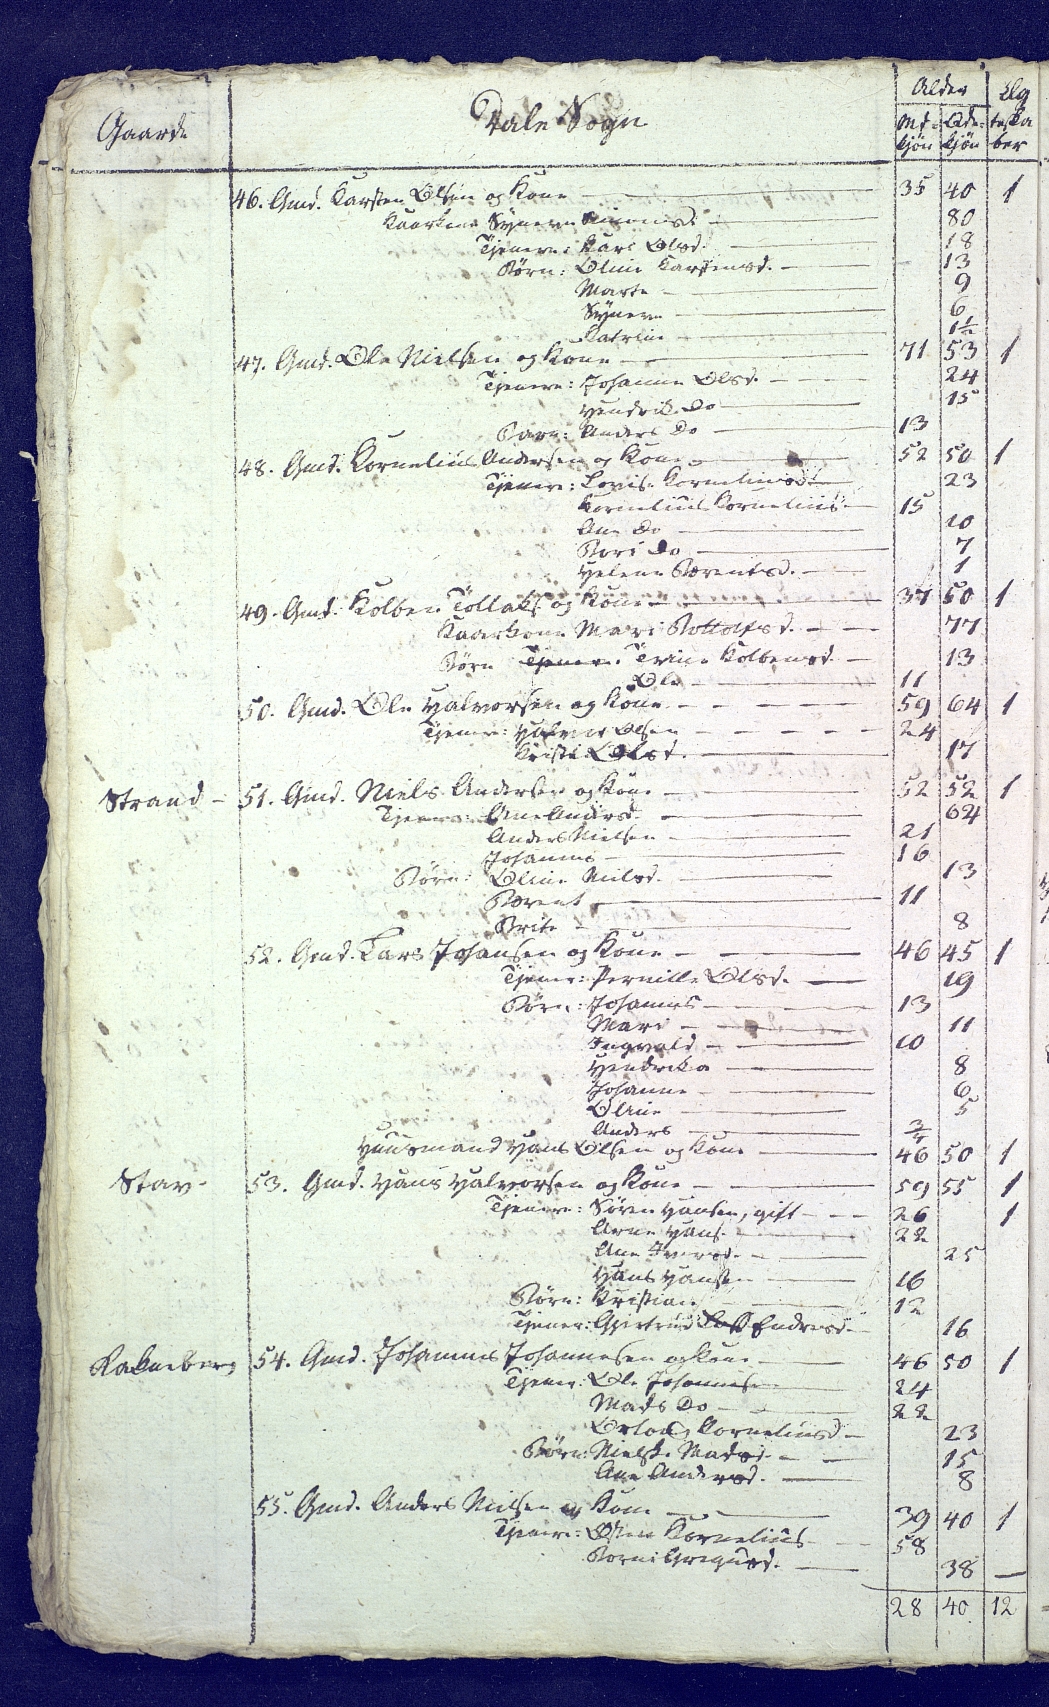 Gaarde Dale Sogn Alder
Md= Qde= 
kjön kjön
46. Gmd. Karsten Olsen og Kone 35 40 1
Kaarkone Synneve Simonsd. 80
Tjenere: Kari Olsd. 18
Börn: Oline Karstensd. 13
Marte 9
Synneve 6
Katrine 1½
47. Gmd. Ole Nielsen og Kone 71 53 1
Tjenere: Johanne Olsd. 24
Hendrik. Do 15
Barn: Anders Do 13
48. Gmd. Kornelius Andersen og Kone 52 50 1
Tjenere: Lovise Korneliusd. 23
Kornelius Kornelius. 15
Ane Do 10
Kari Do 7
Helene Berentsd. 1
49. Gmd. Kolben Tollaks. og Kone 37 50 1
Kaarkone Mari Bottolfsd. 77
Börn Tjener. Trine Kolbensd. 13
Ole 11
50. Gmd. Ole Halvorsen og Kone 59 64 1
Tjener: Halvor Olsen 24
Kristi Olsd. 17
Strand 51. Gmd. Niels Andersen og Kone 52 52 1
Tjenere: Ane Andersd. 64
Anders Nielsen 21
Johannes 16
Börn: Oline Nielsd. 13
Berent 11
Brite 8
52. Gmd. Lars Johansen og Kone 46 45 1
Tjener: Pernille Olsd. 19
Börn: Johannes 13
Mari 11
Ingvald 10
Hendrika 8
Johanne 6
Oline 5
Anders ¾
Huusmand Hans Olsen og Kone 46 50 1
Stav 53. Gmd. Hans Halvorsen og Kone 59 55 1
Tjenere: Sören Hansen, gift 26 1
Arne Hans. 22
Ane Iversd. 25
Hans Hansen 16
Börn: Kristian 12
Tjener: Gjertrud Endresd. 16
Rakneberg 54. Gmd. Johannes Johannesen og Kone 46 50 1
Tjener: Ole Johannesen 24
Mads Do 22
Korneliusd. 23
Börn: Madsd. 15
Ane Andersd. 8
55. Gmd. Anders Nielsen og Kone 39 40 1
Tjenere: Kornelius 58
Gregusd. 38
28 40 12